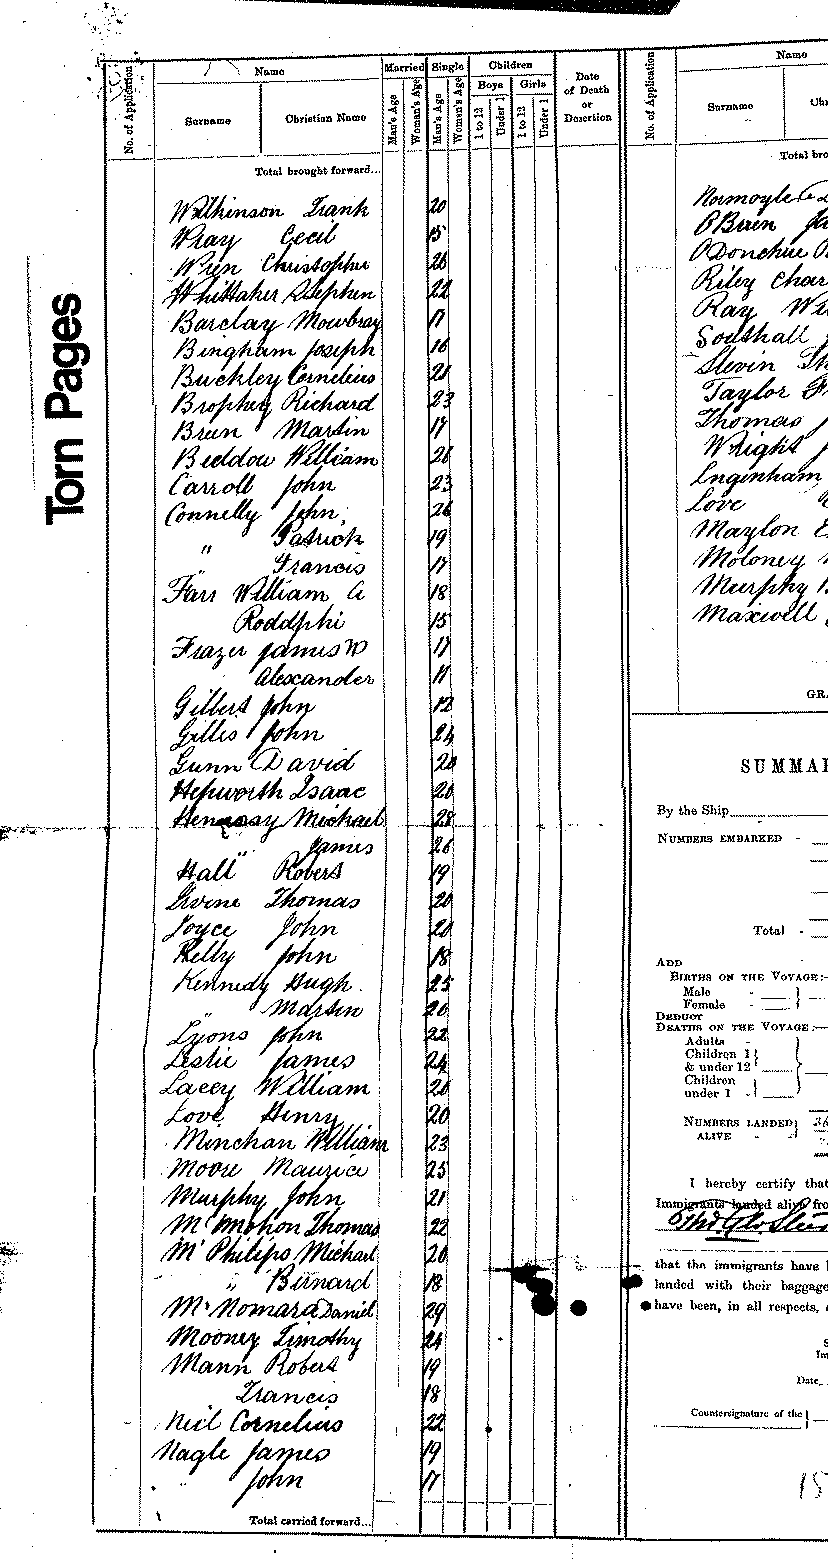 Torn Pages
No. of Application
Name
Surname
Christian Name
Married
Man's Age
Woman's Age
Single
Man's Age
Woman's Age
Children
Boys
1 to 12
Under 1
Girls
1 to 12
Under 1
Date
of Death
or
Desertion
Total brought forward...
Wilkinson Frank 20
Wray Cecil 15
Wren Christopher 26
Whittaker Stephen 22
Barclay Mowbray 17
Bingham Joseph 16
Buckley Cornelius 21
Brophey Richard 23
Brun Martin 17
Beddow William 26
Carroll John 23
Connelly John 26
" Patrick 19
" Francis 17
Farr William A 18
Roddphi 15
Frazer James W 17
Alexander 11
Gilbert John 12
Gillis John 24
Gunn David 20
Hepworth Isaac 20
Hennessy Michael 28
" James 26
Hall Robert 19
Irvine Thomas 20
Joyce John 20
Kelly John 18
Kennedy Hugh 25
" Martin 20
Lyons John 22
Leslie James 24
Lacey William 20
Love Henry 20
Minchan William 23
Moore Maurice 25
Murphy John 21
McMahon Thomas 22
McPhilips Michael 20
" Bernard 18
McNomara Daniel 29
Mooney Timothy 24
Mann Robert 19
Francis 18
Neil Cornelius 22
Nagle James 19
" John 17
Total carried forward...
No. of Application
Name
Surname
Chr
Total bro
Normoyle
O'Brien
O'Donohue
Riley Char
Ray Wi
Southall
Slevin
Taylor F
Thomas J
Wright
Ingenham
Love
Maylon E
Moloney
Murphy
Maxwell
GRA
SUMMAR
By the Ship
NUMBERS EMBARKED -
Total -
ADD
BIRTHS ON THE VOYAGE:—
Male -
Female -
DEDUCT
DEATHS ON THE VOYAGE:—
Adults -
Children 1
& under 12
Children
under 1 -
NUMBERS LANDED
ALIVE -
I hereby certify that
Immigrants landed alive fro
that the immigrants have b
landed with their baggage
have been, in all respects,
S
Im
Date
Countersignature of the
15